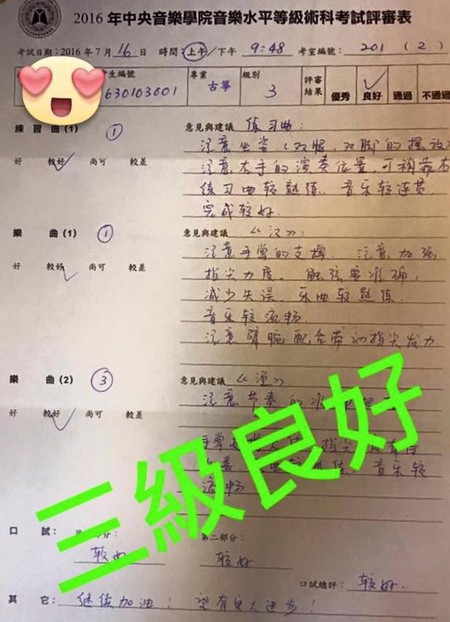 2016 年中央音樂學院音樂水平等級術科考試評審表
考試日期：2016 年 7 月 16 日 時間：上午/下午 9:48 考室編號 201 (2)
生編號 專業 級別 評審結果 優秀 良好 通過 不通過
630103001 古箏 3
練習曲(1) ① 意見與建議 练习曲：
注意坐姿（双腿、双脚）的摆放
好 較好 尚可 較差 注意右手的演奏位置，可稍靠右
练习曲较熟练。音乐较连贯
完成较好。
樂 曲(1) ① 意見與建議
注意手掌的支撑。注意加强
好 較好 尚可 較差 指尖力度。触弦要准确，
减少失误。乐曲较熟练
音乐较流畅
注意臂腕配合带动指尖发力
樂 曲(2) ③ 意見與建議
注意节奏的准
好 較好 尚可 較差
指尖
音乐较
畅
三級良好
口 試： 部分： 第二部分：
较好 较好
口試總評： 较好
其 它： 继续加油！望有更大进步！